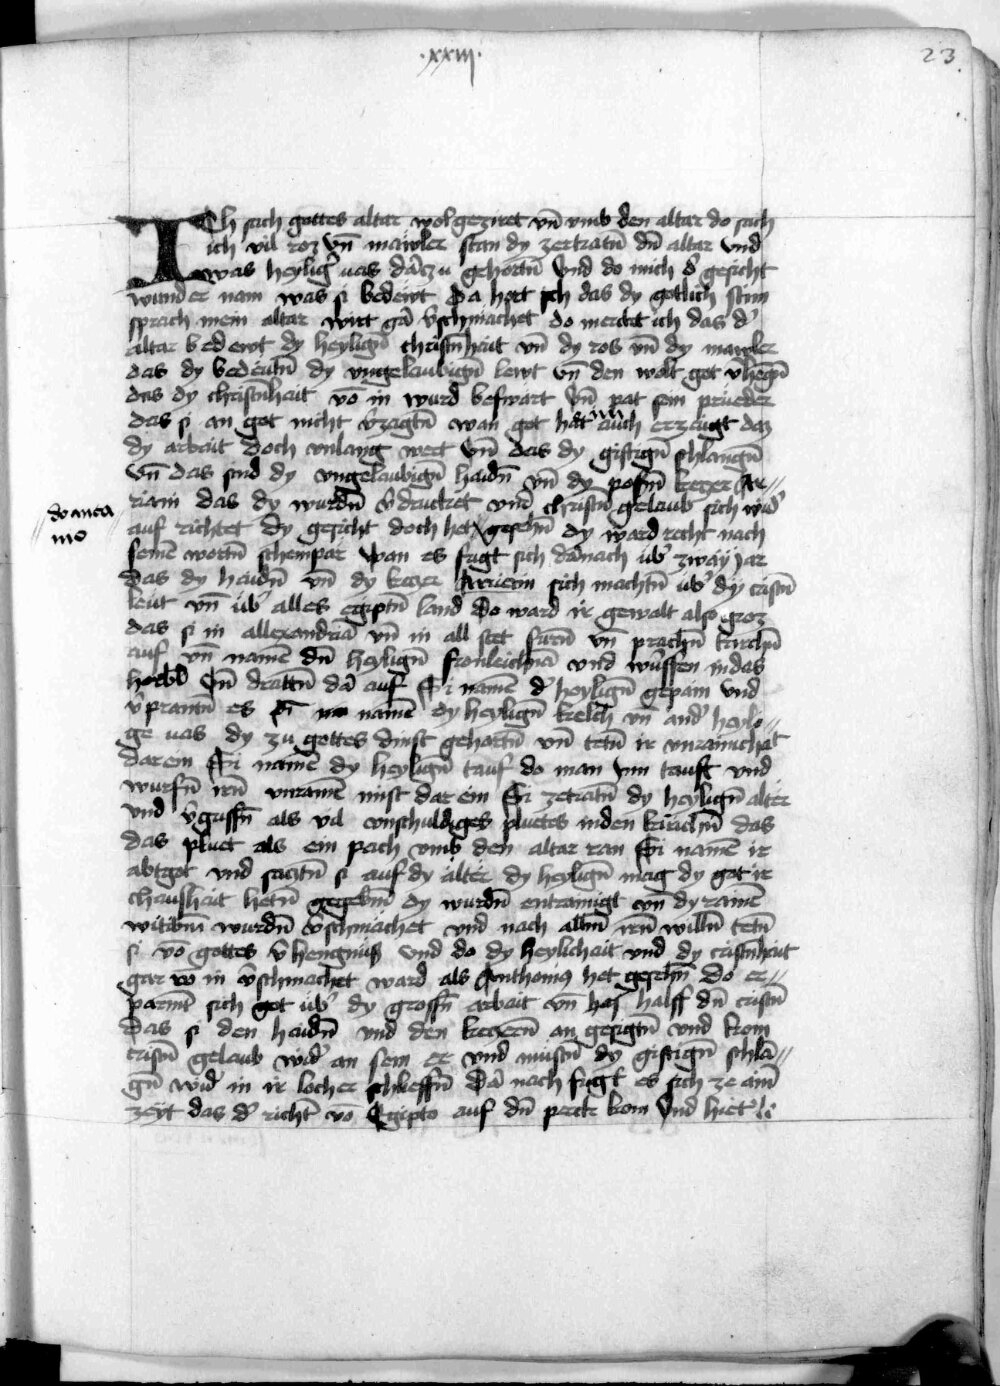 ·xxiii·
23.
Ich sach gottes altar wolgeziret vn̄ vmb den altar do sach
ich vil roz vn̄ mawler stan dy zertratn̄ dn̄ altar vnd
was heyligʼ uas dʼatzu gehortn̄ Vnd do mich dʼ gesicht
wunder nam was si bedewt Da hort ich das dy gotlich stim
sprach mein altar wirt gʼa v̄schmachet do merckt ich das dʼ
altar bedewt dy heylign̄ christn̄hait vn̄ dy ros vn̄ dy mawler
das dy bedeutn̄ dy vngelaubign̄ lewt vn̄ den wolt got v̄hegn̄
das dy christn̄hait vō in wurd beswart Vn̄ pat sein prueder
das si an got nicht v̄zagtn̄ wan got hat im auch erzeugt daz
dy arbait doch vnlang wert Vn̄ das dy giftign̄ schlangn̄
Vn̄ das sind dy vngelaubign̄ haidn̄ vn̄ dy posn̄ ketzer Ar//
riani das dy wurdn̄ v̄druckt vnd christn̄ gelaub sich widʼ
auf richtet Dy gesicht doch het gesehn̄ dy ward recht nach
seinē wortn̄ schempar Wan es fugt sich dʼanach ubʼ zway jar
das dy haidn̄ vn̄ dy ketzer Arriani sich machtn̄ ubʼ dy cristn̄
leut vn̄ ubʼ alles egiptn̄ land Do ward ir gewalt also groz
das si in allexandria vn̄ in all stet furn̄ vn̄ prachn̄ kirchn̄
auf vn̄ namē dn̄ heylign̄ fronleichnā vnd wurffen in das
Vn̄ drattn̄ dʼa auf Si namē dʼ heylign̄ gepain vnd
v̄prantn̄ es Si namē dy heylign̄ kelch vn̄ andʼ heyli//
ge uas dy zu gottes dinst gehortn̄ vn̄ tetn̄ ir vnrainichait
darein Si namē dy heylign̄ tauf do man inn tauft vnd
wurfn̄ irn̄ vnrainē mist dar ein Si zetratn̄ dy heylign̄ alter
vnd v̄gussn̄ als vil vnschuldiges pluetes in den kirichn̄ das
das pluet als ein pach vmb den altar ran Si namē ir
abtgot vnd sacztn̄ si auf dy alter dy heylign̄ maig dy got ir
chaushait hetn̄ gegebn̄ dy wurdn̄ entrainigt vn̄ dy rainē
witabm̄ wurdn̄ v̄schmachet vnd nach allm̄ irn̄ willn̄ tetn̄
si vō gottes v̄hengnus Vnd do dy heylichait vnd dy cristn̄hait
gar vō in v̄schmachet ward als Anthonius het gesehn̄ Do er//
parmt sich got ubʼ dy grossn̄ arbait vn̄ half dn̄ cristn̄
das si den haidn̄ vnd den ketzern̄ an gesigtn̄ vnd kom
cristn̄ gelaub widʼ an sein er vnd mustn̄ dy giftign̄ schlā//
gn̄ widʼ in ir locher schlieffn̄ Dʼa nach fugt es sich ze ainʼ
zeyt das dʼ richtʼ vō Egipto auf dn̄ perck kom Vnd hiet